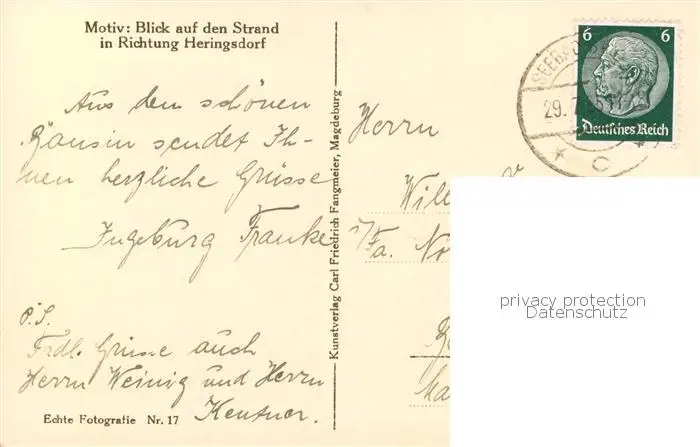 Motiv: Blick auf den Strand
in Richtung Heringsdorf
Aus dem schönen
Bansin sendet Ih-
nen herzliche Grüsse
Ingeburg Franke
P.S.
Frdl. Grüsse auch
Herrn Weinig und Herrn
Kentner.
Echte Fotografie Nr. 17
Kunstverlag Carl Friedrich Fangmeier, Magdeburg
6 6
Deutsches Reich
SEEBAD
29.
C
Herrn
Will
i/Fa. No
privacy protection
Datenschutz